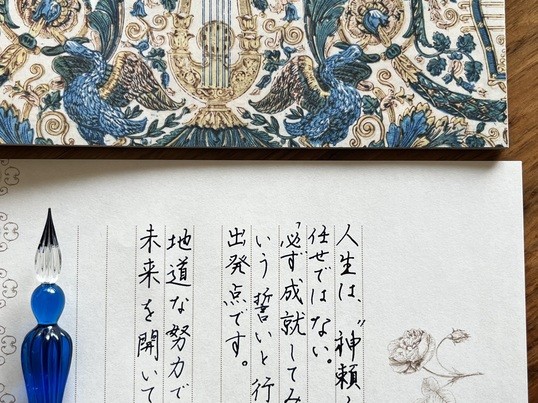 人生は、〝神頼
任せではない。
「必ず成就してみ
いう誓いと行
出発点です。
地道な努力で
未来を開いて